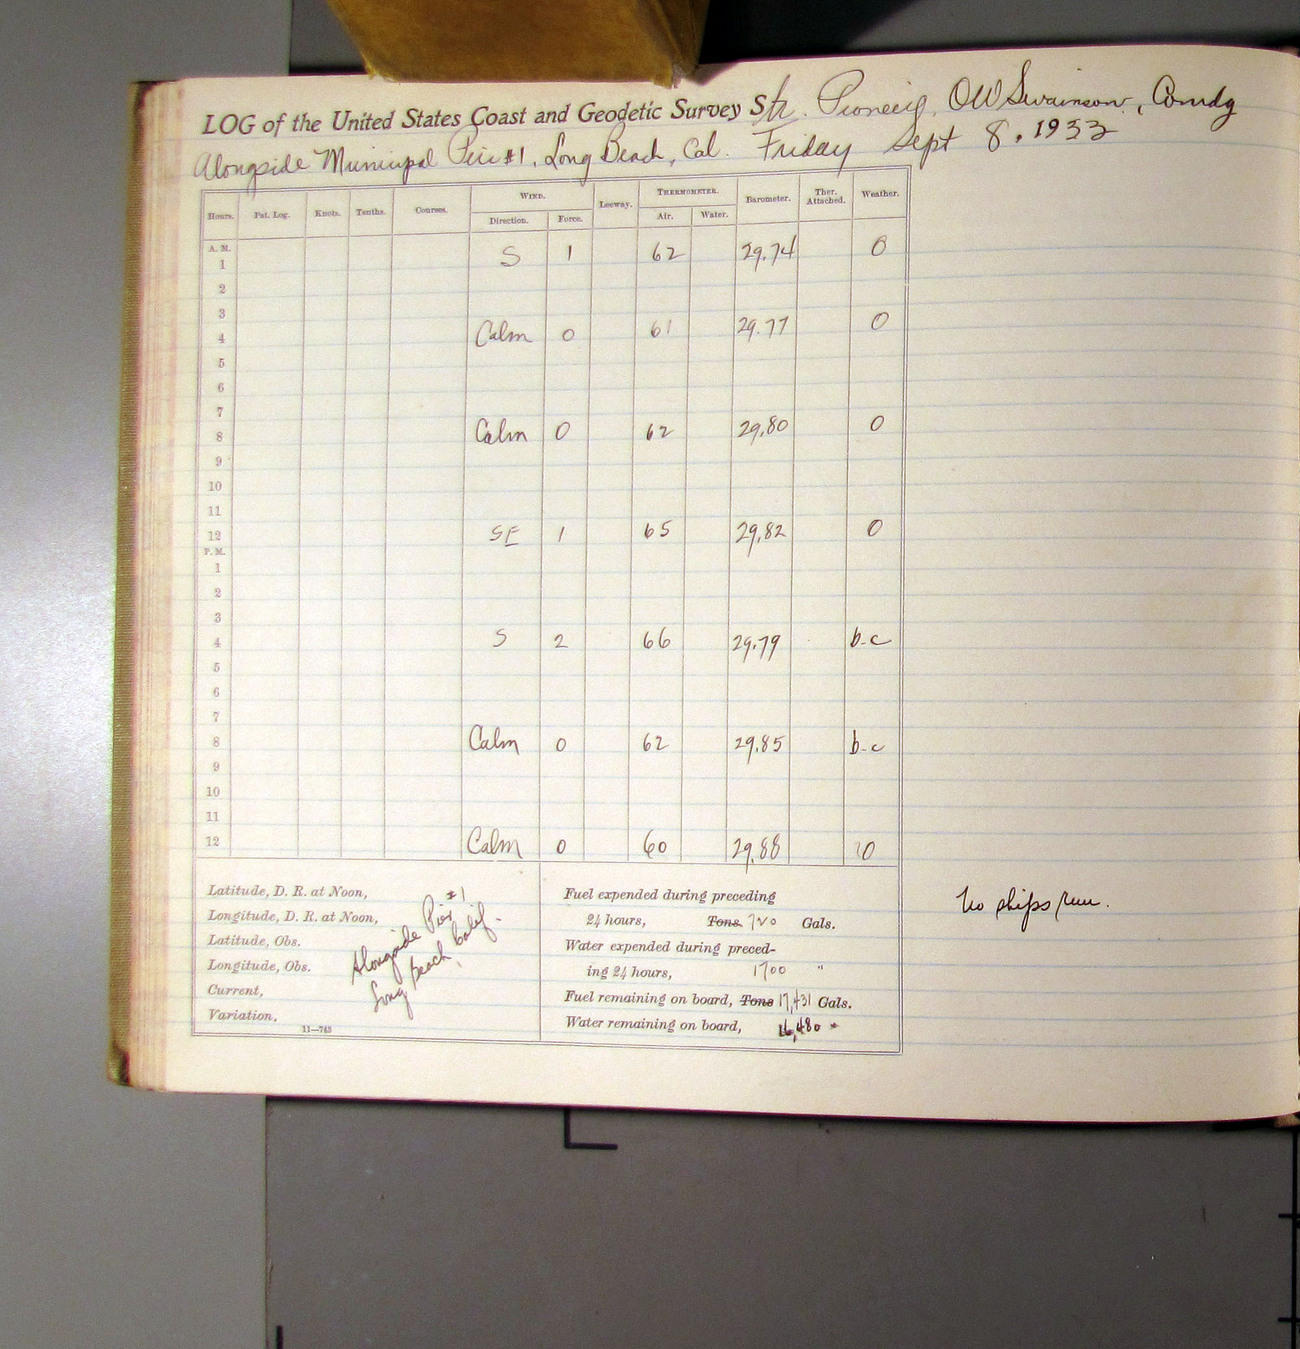 LOG of the United States Coast and Geodetic Survey Str. Pioneer, OW Swainson, Comdg
Alongside Municipal Pier #1, Long Beach, Cal. Friday Sept 8, 1933
Hours. Pat. Log. Knots. Tenths. Courses. WIND. Leeway. THERMOMETER. Barometer. Ther. Attached. Weather.
Direction. Force. Air. Water.
A. M.
1 S 1 62 29.74 0
2
3
4 Calm 0 61 29.77 0
5
6
7
8 Calm 0 62 29.80 0
9
10
11
12 SE 1 65 29.82 0
P. M.
1
2
3
4 S 2 66 29.79 b-c
5
6
7
8 Calm 0 62 29.85 b-c
9
10
11
12 Calm 0 60 29.88 0
Latitude, D. R. at Noon,
Longitude, D. R. at Noon,
Latitude, Obs.
Longitude, Obs.
Current,
Variation,
11—743
Alongside Pier #1
Long Beach, Calif.
Fuel expended during preceding
24 hours, Tons 720 Gals.
Water expended during preced-
ing 24 hours, 1700 "
Fuel remaining on board, Tons 17,431 Gals.
Water remaining on board, 16,480 "
No ships run.